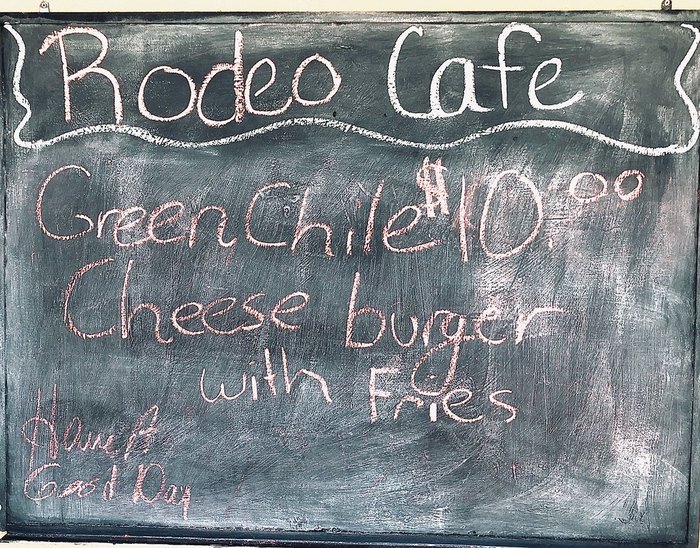 Rodeo Cafe
Green Chile $10.00
Cheese burger
with Fries
Have A
Good Day